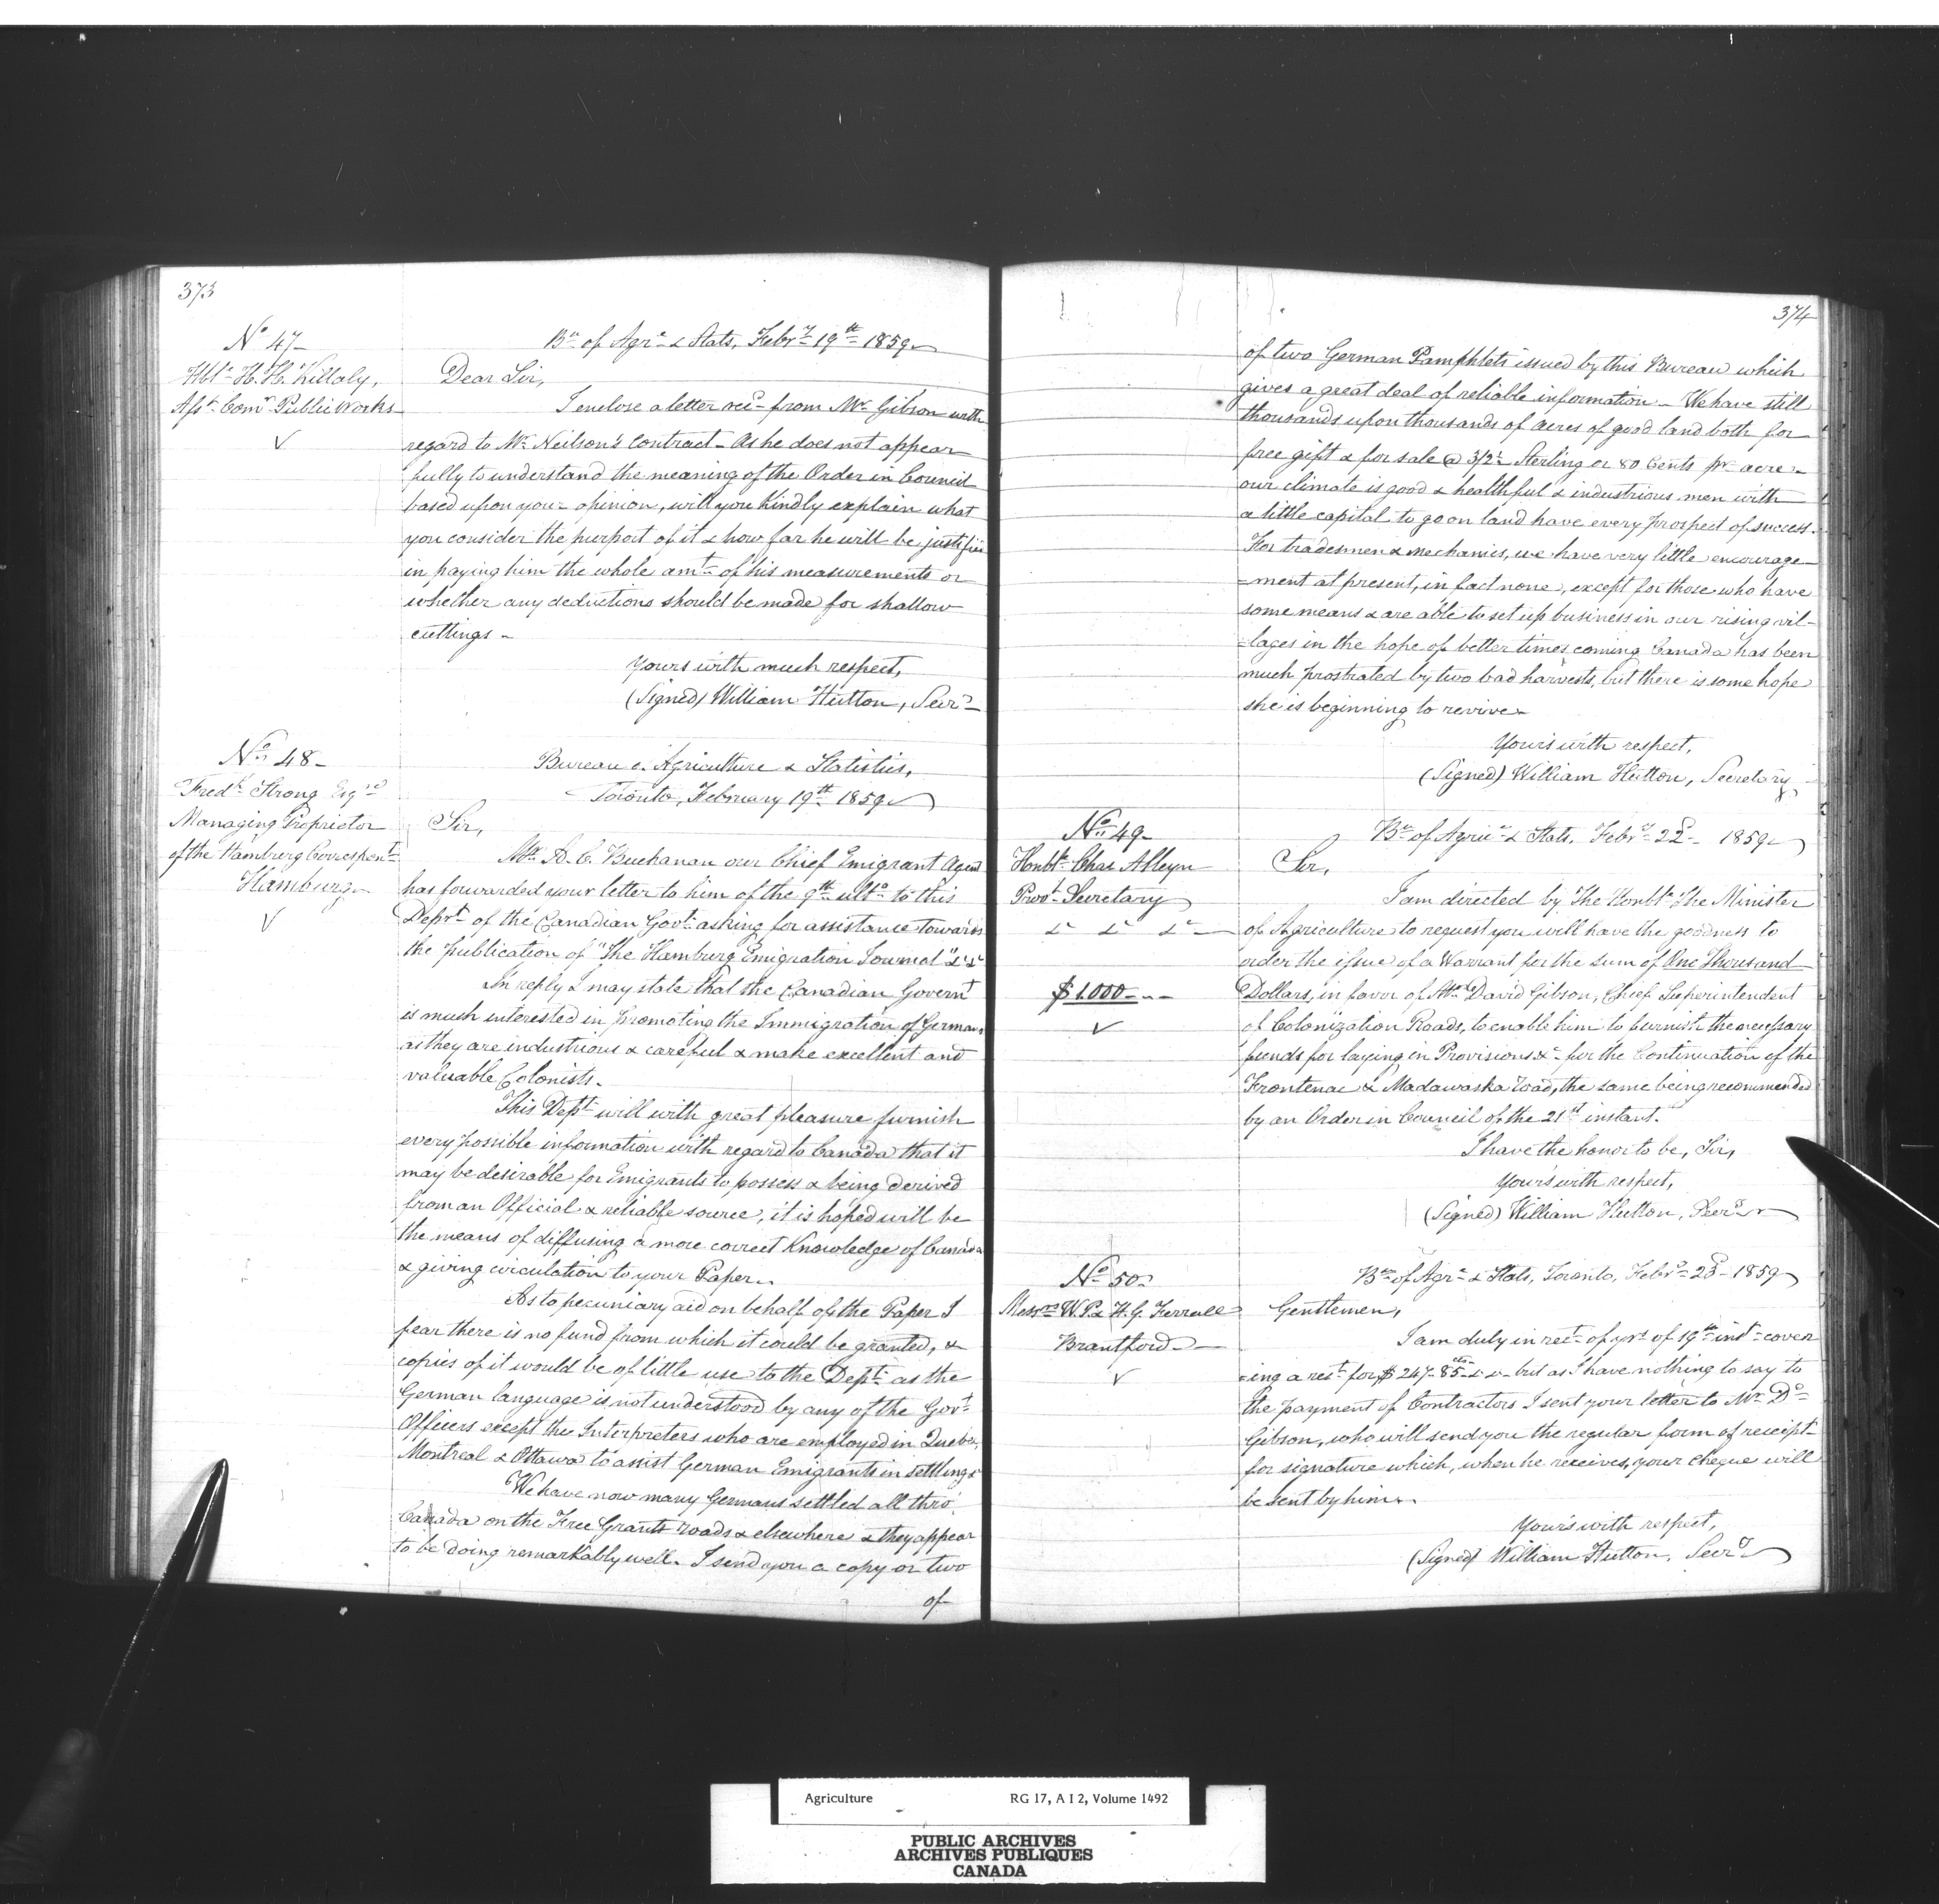 373
No 47
Hble H. H. Killaly,
Asst Comr Public Works
Bu of Agre & Stats, Febry 19th 1859
Dear Sir,
I enclose a letter recd from Mr Gibson with
regard to Mr Neilson's Contract - As he does not appear
fully to understand the meaning of the Order in Council
based upon your opinion, will you Kindly explain what
you consider the purport of it & how far he will be justified
in paying him the whole amt of his measurements or
whether any deductions should be made for shallow
cuttings -
Yours with much respect,
(Signed) William Hutton, Secy
No 48
Fredk Strong Esqre
Managing Proprietor
of the Hamburg Correspondt
Hamburg
Bureau of Agriculture & Statistics,
Toronto, February 19th 1859
Sir,
Mr A. C. Buchanan our Chief Emigrant Agent
has forwarded your letter to him of the 9th ulto to this
Deprt of the Canadian Govt asking for assistance towards
the publication of "The Hamburg Emigration Journal" &c &c
In reply I may state that the Canadian Governt
is much interested in promoting the Immigration of Germans
as they are industrious & careful & make excellent and
valuable Colonists.
This Dept will with great pleasure furnish
every possible information with regard to Canada that it
may be desirable for Emigrants to possess & being derived
from an Official & reliable source, it is hoped will be
the means of diffusing a more correct Knowledge of Canada
& giving circulation to your Paper.
As to pecuniary aid on behalf of the Paper I
fear there is no fund from which it could be granted, &
copies of it would be of little use to the Dept as the
German language is not understood by any of the Govt
Officers except the Interpreters who are employed in Quebec,
Montreal & Ottawa to assist German Emigrants in settling &c
We have now many Germans settled all thro'
Canada on the Free Grants roads & elsewhere & they appear
to be doing remarkably well. I send you a copy or two
of
374
of two German Pamphlets issued by this Bureau which
gives a great deal of reliable information - We have still
thousands upon thousands of acres of good land both for
free gift & for sale @ 3/2d Sterling or 80 Cents pr acre -
our climate is good & healthful & industrious men with
a little capital to go on land have every prospect of success.
For tradesmen & mechanics, we have very little encourage-
=ment at present, in fact none, except for those who have
some means & are able to set up business in our rising vil-
=lages in the hope of better times coming Canada has been
much prostrated by two bad harvests, but there is some hope
she is beginning to revive
Yours with respect,
(Signed) William Hutton, Secretary
No 49
Honble Chas Alleyn
Provl Secretary
&c &c &c
$1000
Bu of Agric & Stats, Febry 22d 1859
Sir,
I am directed by The Honble The Minister
of Agriculture to request you will have the goodness to
order the issue of a Warrant for the sum of One Thousand
Dollars, in favor of Mr David Gibson, Chief Superintendent
of Colonization Roads, to enable him to furnish the necessary
funds for laying in Provisions &c for the Continuation of the
Frontenac & Madawaska road, the same being recommended
by an Order in Council of the 21st instant.
I have the honor to be, Sir,
Yours with respect,
(Signed) William Hutton, Secry
No 50
Messrs W. P. & H. G. Furrell
Brantford
Bu of Agre & Stats, Toronto, Febry 23d 1859
Gentlemen,
I am duly in rect of yrs of 19th inst cover
=ing a rect for $247-85cts &c but as I have nothing to say to
the payment of Contractors I sent your letter to Mr Dd
Gibson, who will send you the regular form of receipt
for signature which, when he receives, your cheque will
be sent by him.
Yours with respect,
(Signed) William Hutton, Secry
Agriculture RG 17, A I 2, Volume 1492
PUBLIC ARCHIVES
ARCHIVES PUBLIQUES
CANADA